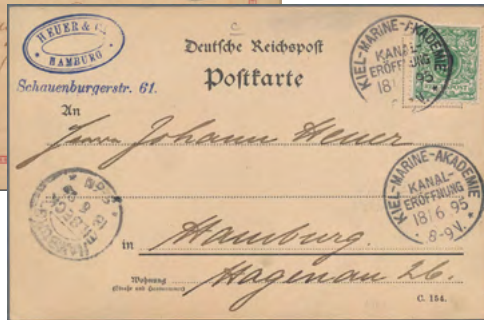 HEUER & C.
HAMBURG
Schauenburgerstr. 61.
Deutsche Reichspost
Postkarte
KIEL-MARINE-AKADEMIE
KANAL-
ERÖFFNUNG
18/6 95
V.
An
Herrn Johann Heuer
KIEL-MARINE-AKADEMIE
KANAL-
ERÖFFNUNG
18/6 95
8-9 V.
HAMBURG
in
Hamburg.
Wohnung
(Straße und Hausnummer)
Hagenau 26.
C. 154.